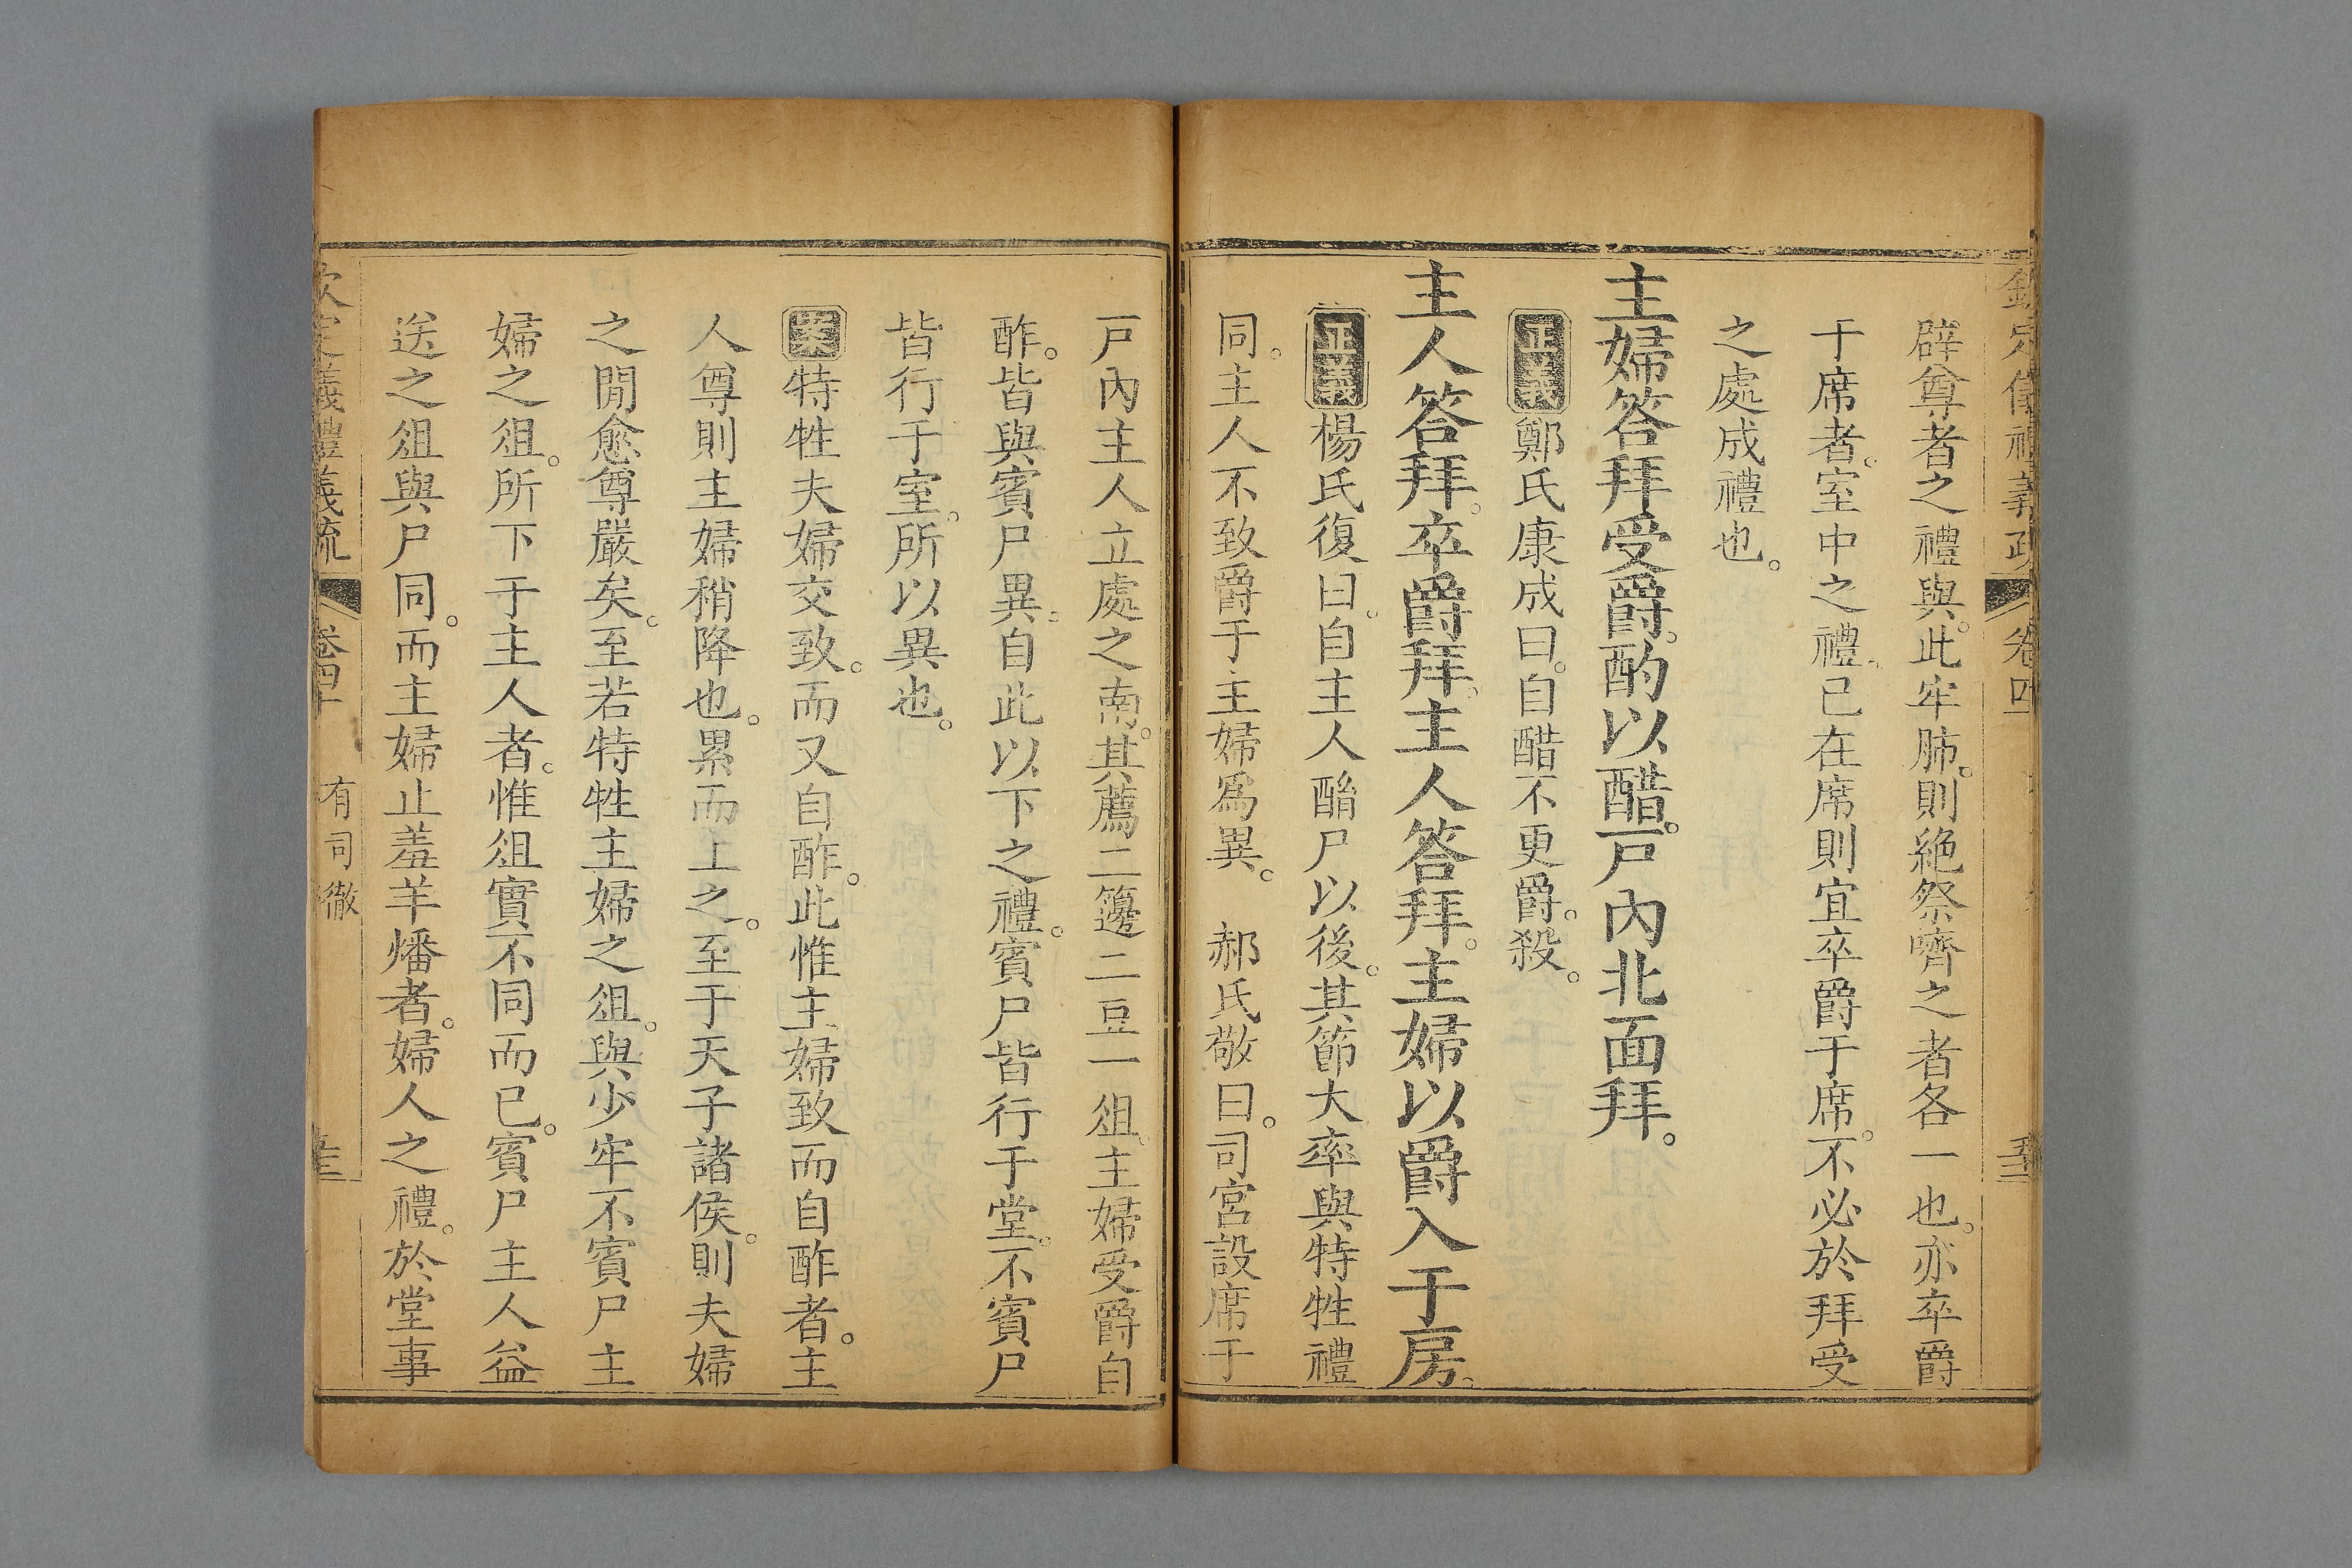 辟尊者之禮與。此牢肺。則絶祭嚌之者各一也。亦卒爵
于席者。室中之禮。已在席則宜卒爵于席。不必於拜受
之處成禮也。
主婦答拜受爵。酌以醋。戸內北面拜。
正義鄭氏康成曰。自醋不更爵。殺。
主人答拜。卒爵拜。主人答拜。主婦以爵入于房。
正義楊氏復曰。自主人酳尸以後。其節大率與特牲禮
同。主人不致爵于主婦爲異。 郝氏敬曰。司宮設席于
戸內主人立處之南。其薦二籩二豆一俎。主婦受爵自
酢。皆與賓尸異。自此以下之禮。賓尸皆行于堂。不賓尸
皆行于室。所以異也。
案特牲夫婦交致。而又自酢。此惟主婦致而自酢者。主
人尊則主婦稍降也。累而上之。至于天子諸侯。則夫婦
之閒愈尊嚴矣。至若特牲主婦之俎。與少牢不賓尸主
婦之俎。所下于主人者。惟俎實不同而已。賓尸主人益
送之俎與尸同。而主婦止羞羊燔者。婦人之禮。於堂事
欽定義禮義疏 卷四十 有司徹